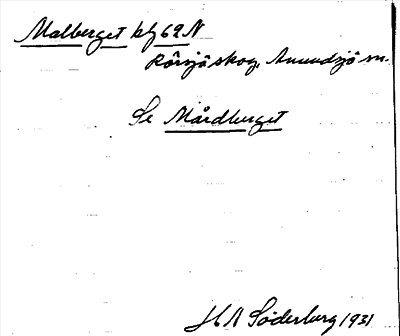 Malberget kf 62 N
Rörsjöskog, Anundsjö sn.
Se Mårdberget
H A Söderberg 1931